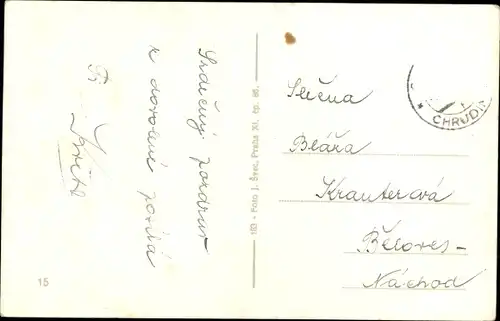 Srdečný pozdrav
z dovolené posílá
183 - Foto J. Švec, Praha XI, čp. 86.
Slečna
Blára
Krauterová
Běloves -
Náchod
* CHRUDIM
15